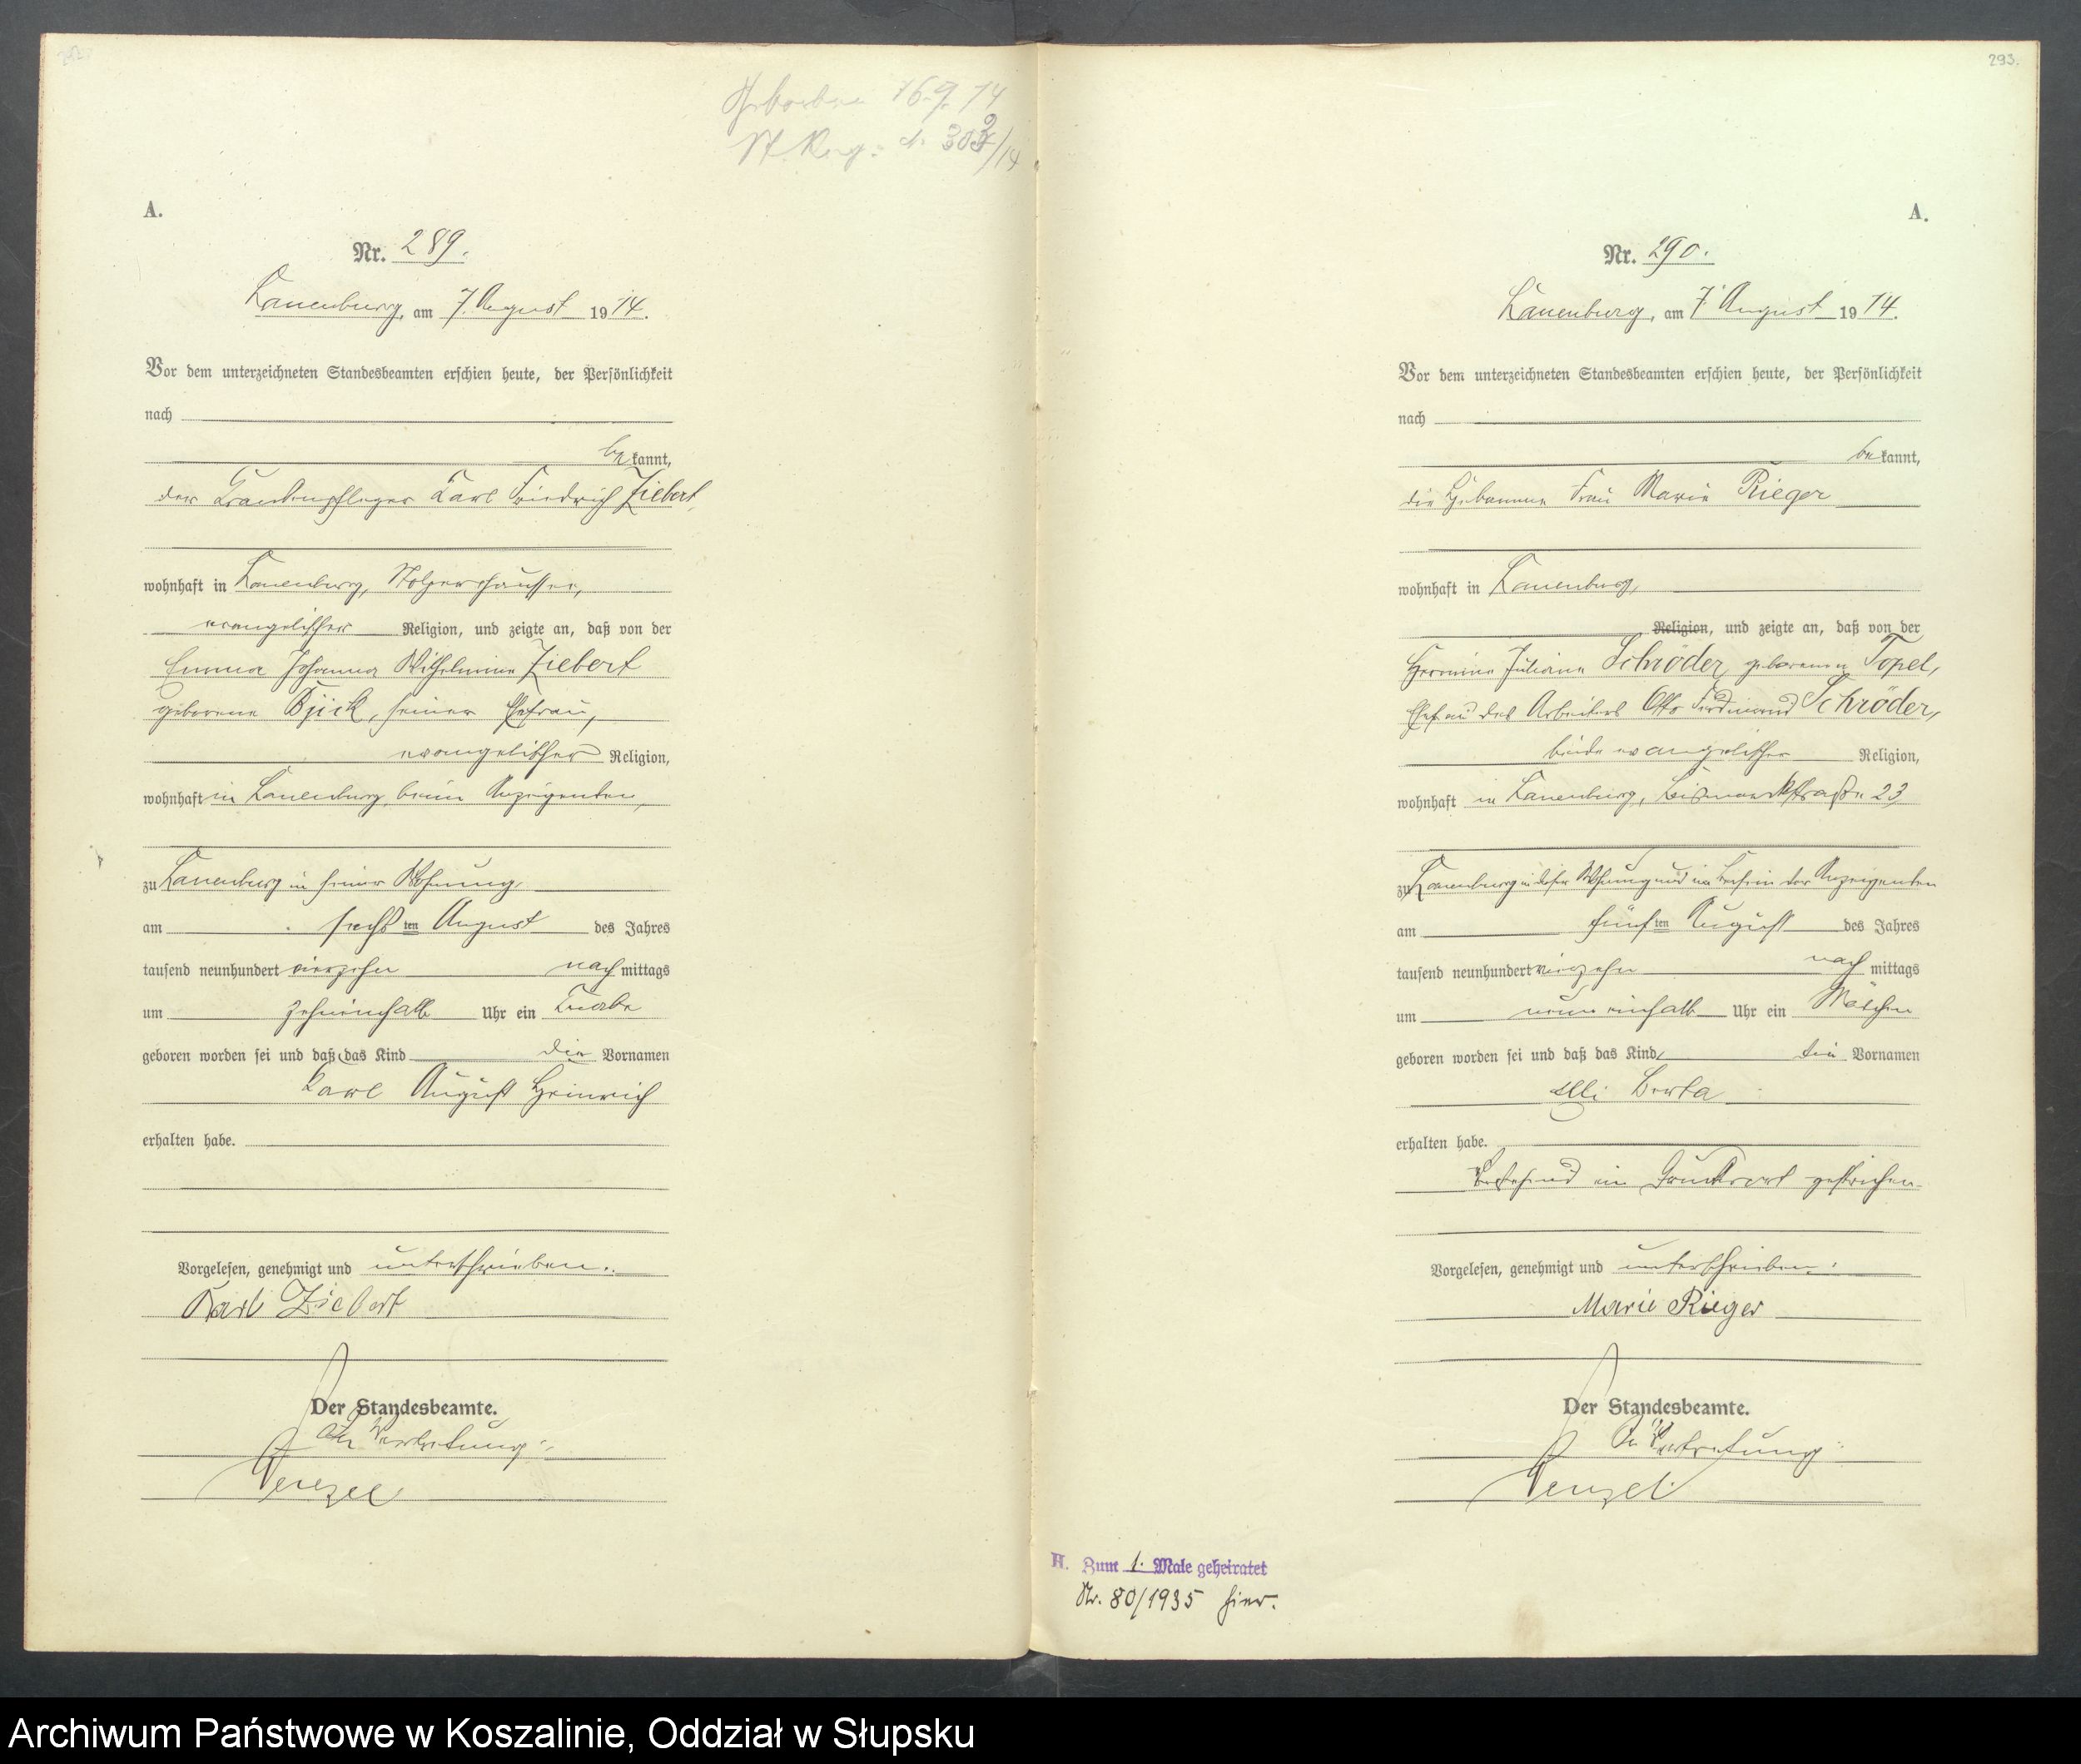 Gestorben 16.9.14
St. Reg. 302/14
A.
Nr. 289.
Lauenburg, am 7. August 1914.
Vor dem unterzeichneten Standesbeamten erschien heute, der Persönlichkeit
nach
bekannt,
der Krankenpfleger Karl Friedrich Ziebert,
wohnhaft in Lauenburg, Stolperchaussee,
evangelischer Religion, und zeigte an, daß von der
Emma Johanna Wilhelmine Ziebert
geborene Bjick, seiner Ehefrau,
evangelischer Religion,
wohnhaft in Lauenburg, beim Anzeigenden,
zu Lauenburg in seiner Wohnung,
am sechsten August des Jahres
tausend neunhundert vierzehn nachmittags
um zehneinhalb Uhr ein Knabe
geboren worden sei und daß das Kind die Vornamen
Karl August Heinrich
erhalten habe.
Vorgelesen, genehmigt und unterschrieben.
Karl Ziebert
Der Standesbeamte.
In Vertretung:
Wenzel
293.
A.
Nr. 290.
Lauenburg, am 7. August 1914.
Vor dem unterzeichneten Standesbeamten erschien heute, der Persönlichkeit
nach
bekannt,
die Hebamme Frau Marie Rieger
wohnhaft in Lauenburg,
Religion, und zeigte an, daß von der
Hermine Juliane Schröder, geborenen Topel,
Ehefrau des Arbeiters Otto Ferdinand Schröder,
beide evangelischer Religion,
wohnhaft in Lauenburg, Bismarckstraße 23
zu Lauenburg in dieser Wohnung und im Beisein der Anzeigenden
am fünften August des Jahres
tausend neunhundert vierzehn nachmittags
um neuneinhalb Uhr ein Mädchen
geboren worden sei und daß das Kind, die Vornamen
Elli Berta
erhalten habe.
Vorstehend ein Druckwort gestrichen.
Vorgelesen, genehmigt und unterschrieben:
Marie Rieger
Der Standesbeamte.
In Vertretung:
Wenzel
H. Zum 1. Male geheiratet
Nr. 80/1935 hier.
Archiwum Państwowe w Koszalinie, Oddział w Słupsku